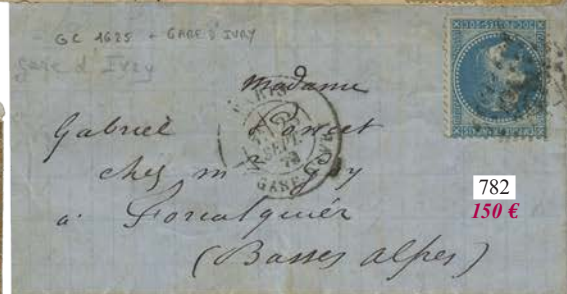 GC 1625 - GARE D'IVRY
gare d'Ivry
madame
Gabriel Poncet
chez mr
a. Forcalquier
(Basses alpes)
PARIS
SEPT.
GARE D'IVRY
782
150 €